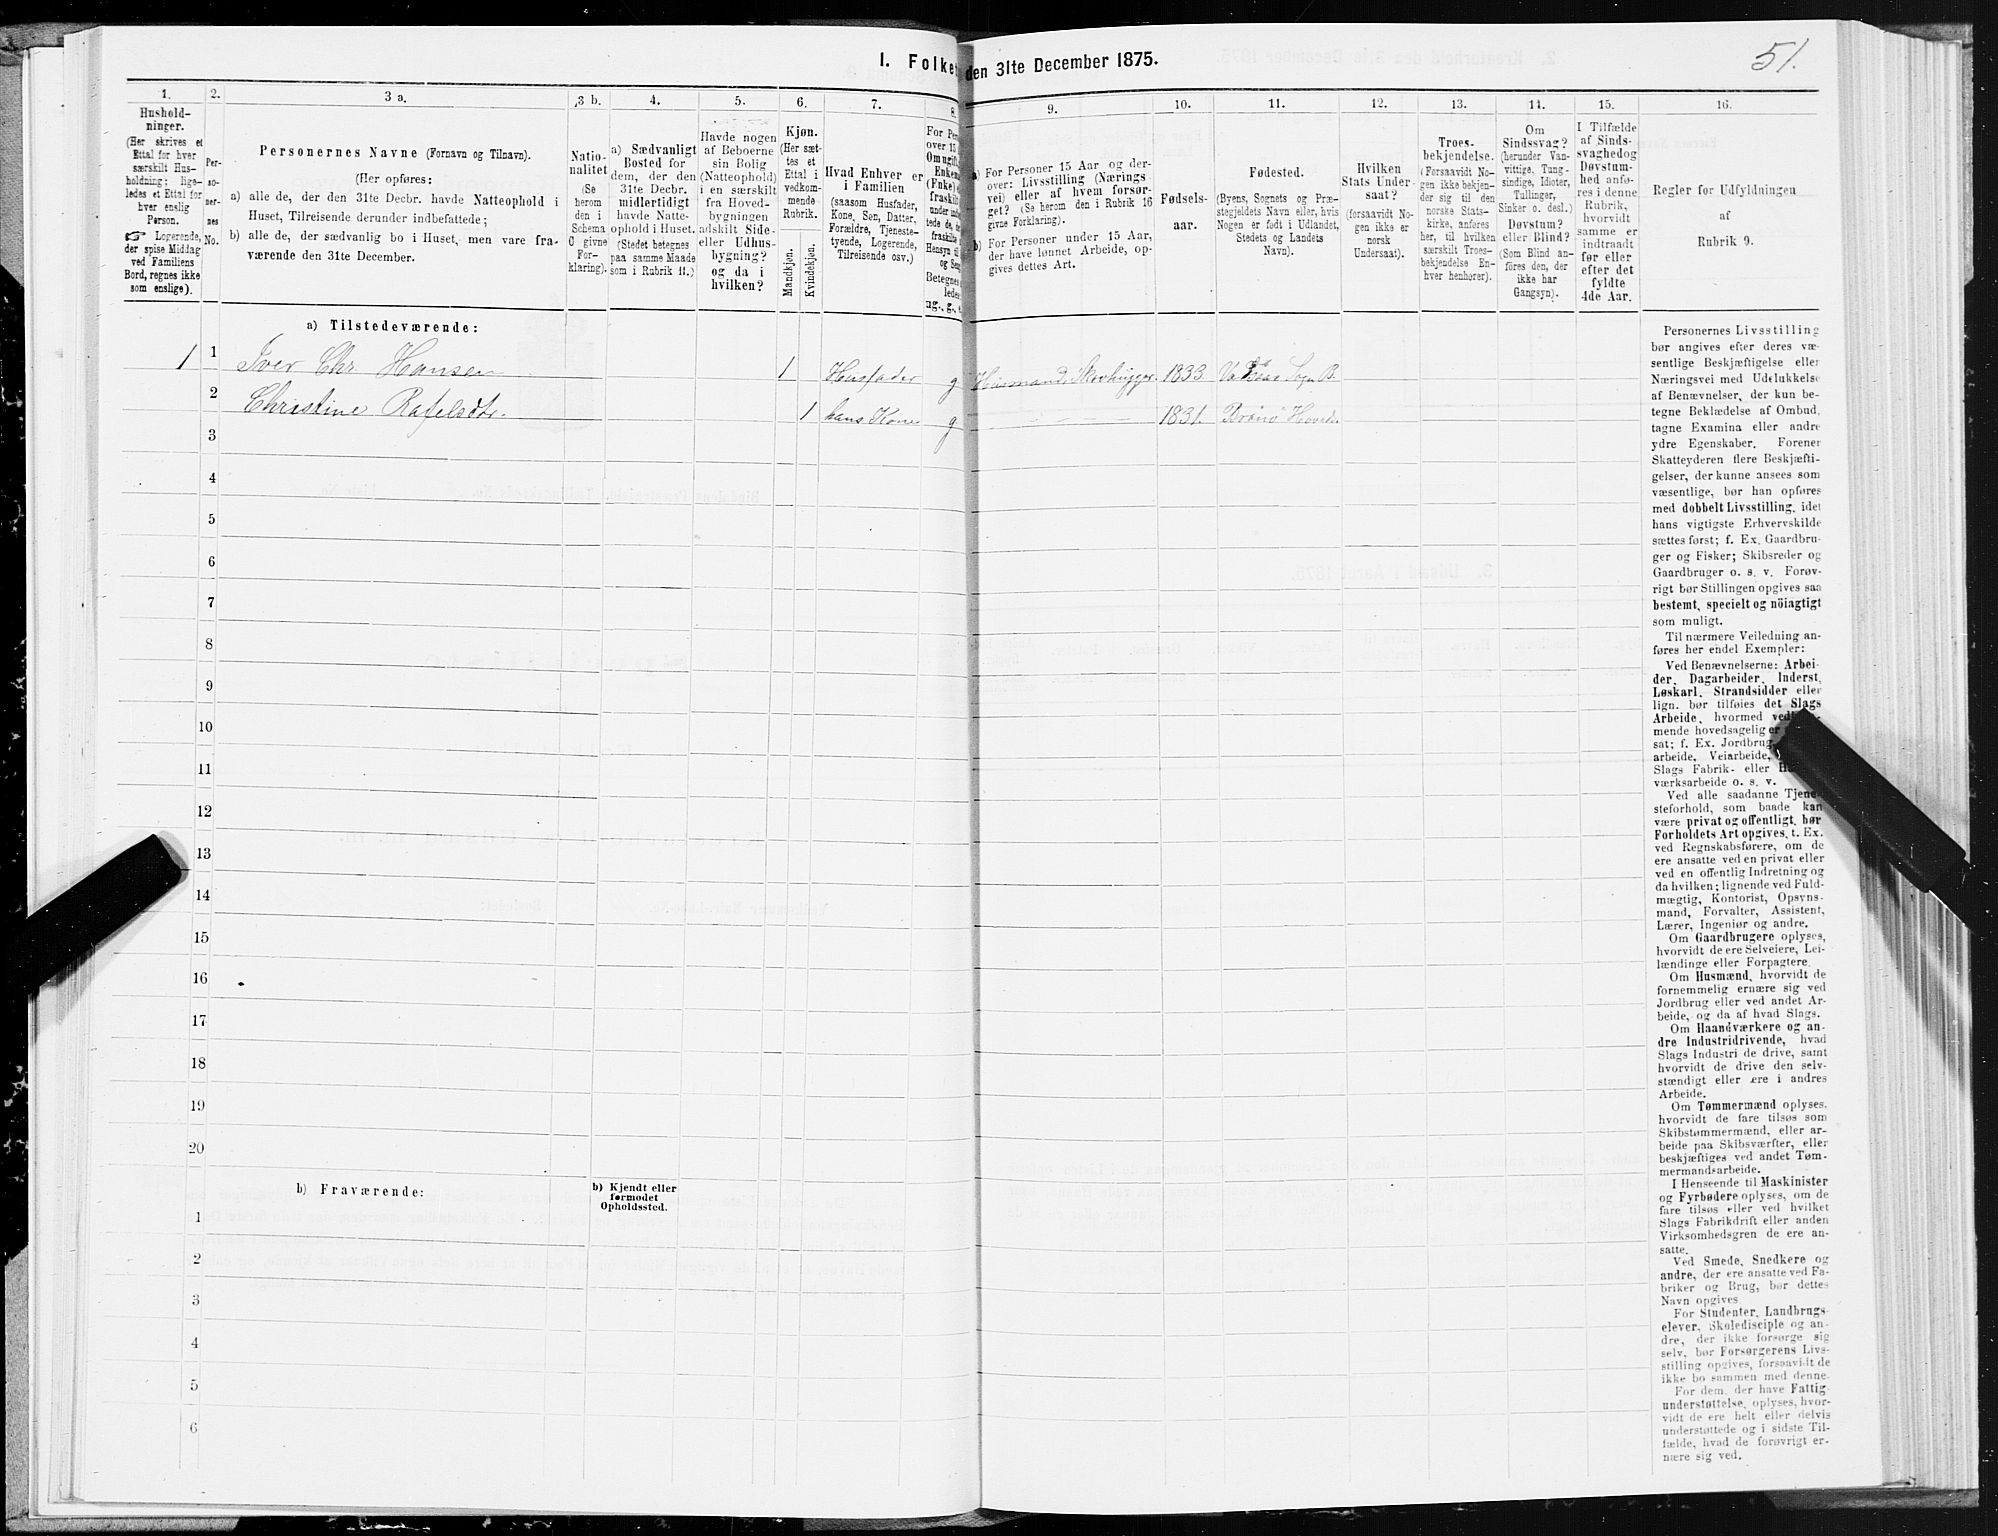 I. Folket
den 31te December 1875.
51.
1.
Hushold-
ninger.
(Her skrives et
Ettal for hver
særskilt Hus-
holdning; lige-
ledes et Ettal for
hver enslig
Person.
☞ Logerende,
der spise Middag
ved Familiens
Bord, regnes ikke
som enslige).
2.
Per-
so-
ner-
nes
No.
3 a.
Personernes Navne (Fornavn og Tilnavn).
(Her opføres:
a) alle de, der den 31te Decbr. havde Natteophold i
Huset, Tilreisende derunder indbefattede;
b) alle de, der sædvanlig bo i Huset, men vare fra-
værende den 31te December.
3 b.
Natio-
nalitet
(Se
herom
den i
Schema
C givne
For-
klaring).
4.
a) Sædvanligt
Bosted for
dem, der den
31te Decbr.
midlertidigt
havde Natte-
ophold i Huset.
(Stedet betegnes
paa samme Maade
som i Rubrik 11.)
5.
Havde nogen
af Beboerne
sin Bolig
(Natteophold)
i en særskilt
fra Hoved-
bygningen
adskilt Side-
eller Udhus-
bygning?
og da i
hvilken?
6.
Kjøn.
(Her sæt-
tes et
Ettal i
vedkom-
mende
Rubrik.
Mandkjøn.
Kvindekjøn.
7.
Hvad Enhver er
i Familien
(saasom Husfader,
Kone, Søn, Datter,
Forældre, Tjeneste-
tyende, Logerende,
Tilreisende osv.)
8.
For Per
over 15
Omugift,
Enkema
(Enke) e
fraskilt
under ind
tede de, de
fraskilte
Hensyn til
og Seng
Betegnes
lede
ug., g.,
9.
a) For Personer 15 Aar og der-
over: Livsstilling (Nærings
vei) eller af hvem forsør-
get? (Se herom den i Rubrik 16
givne Forklaring).
b) For Personer under 15 Aar,
der have lønnet Arbeide, op-
gives dettes Art.
10.
Fødsels-
aar.
11.
Fødested.
(Byens, Sognets og Præ-
stegjeldets Navn eller, hvis
Nogen er født i Udlandet,
Stedets og Landets
Navn).
12.
Hvilken
Stats Under-
saat?
(forsaavidt No-
gen ikke er
norsk
Undersaat).
13.
Troes-
bekjendelse.
(Forsaavidt No-
gen ikke bekjen-
der sig til den
norske Stats-
kirke, anføres
her, til hvilken
særskilt Troes-
bekjendelse En-
hver henhører).
14.
Om
Sindssvag?
(herunder Van-
vittige, Tung-
sindige, Idioter,
Tullinger,
Sinker o. desl.)
Døvstum?
eller Blind?
(Som Blind an-
føres den, der
ikke har
Gangsyn).
15.
I Tilfælde
af Sinds-
svaghedog
Døvstum-
hed anfø-
res i denne
Rubrik,
hvorvidt
samme er
indtraadt
før eller
efter det
fyldte
4de Aar.
16.
Regler for Udfyldningen
af
Rubrik 9.
a) Tilstedeværende:
1 1 Iver Chr Hansen 1 Husfader g Husmand, Skovhugger. 1833. Sogn B.
2 Christine Rafelsdtr. 1 hans Kone g 1831. Brønø Hoveds.
3
4
5
6
7
8
9
10
11
12
13
14
15
16
17
18
19
20
b) Fraværende:
b) Kjendt eller
formodet
Opholdssted.
1
2
3
4
5
6
Personernes Livsstilling
bør angives efter deres væ-
sentlige Beskjæftigelse eller
Næringsvei med Udelukkelse
af Benævnelser, der kun be-
tegne Beklædelse af Ombud,
tagne Examina eller andre
ydre Egenskaber. Forener
Skatteyderen flere Beskjæfti-
gelser, der kunne ansees som
væsentlige, bør han opføres
med dobbelt Livsstilling, idet
hans vigtigste Erhvervskilde
sættes først; f. Ex. Gaardbru-
ger og Fisker; Skibsreder og
Gaardbruger o. s. v. Forøv-
rigt bør Stillingen opgives saa
bestemt, specielt og nöiagtigt
som muligt.
Til nærmere Veiledning an-
føres her endel Exempler:
Ved Benævnelserne: Arbei-
der, Dagarbeider, Inderst,
Løskarl, Strandsidder eller
lign. bør tilføies det Slags
Arbeide, hvormed
mende hovedsagelig er
sat; f. Ex. Jordbrug,
arbeide, Veiarbeide,
Slags Fabrik- eller
værksarbeide o. s. v.
Ved alle saadanne Tjene-
steforhold, som baade kan
være privat og offentligt, bør
Forholdets Art opgives, t. Ex.
ved Regnskabsførere, om de
ere ansatte ved en privat eller
ved en offentlig Indretning og
da hvilken; lignende ved Fuld-
mægtig, Kontorist, Opsyns-
mand, Forvalter, Assistent,
Lærer, Ingeniør og andre.
Om Gaardbrugere oplyses,
hvorvidt de ere Selveiere, Lei-
lændinge eller Forpagtere.
Om Husmænd, hvorvidt de
fornemmelig ernære sig ved
Jordbrug eller ved andet Ar-
beide, og da af hvad Slags.
Om Haandværkere og an-
dre Industridrivende, hvad
Slags Industri de drive, samt
hvorvidt de drive den selv-
stændigt eller ere i andres
Arbeide.
Om Tømmermænd oplyses,
hvorvidt de fare tilsøs som
Skibstømmermænd, eller ar-
beide paa Skibsværfter, eller
beskjæftiges ved andet Tøm-
mermandsarbeide.
I Henseende til Maskinister
og Fyrbødere oplyses, om de
fare tilsøs eller ved hvilket
Slags Fabrikdrift eller anden
Virksomhedsgren de ere an-
satte.
Ved Smede, Snedkere og
andre, der ere ansatte ved Fa-
briker og Brug, bør dettes
Navn opgives.
For Studenter, Landbrugs-
elever, Skoledisciple og an-
dre, der ikke forsørge sig
selv, bør Forsørgerens Livs-
stilling opgives, forsaavidt de
ikke bo sammen med denne.
For dem, der have Fattig-
understøttelse, oplyses, hvor-
vidt de ere helt eller delvis
understøttede og i sidste Til-
fælde, hvad de forøvrigt er-
nære sig ved.